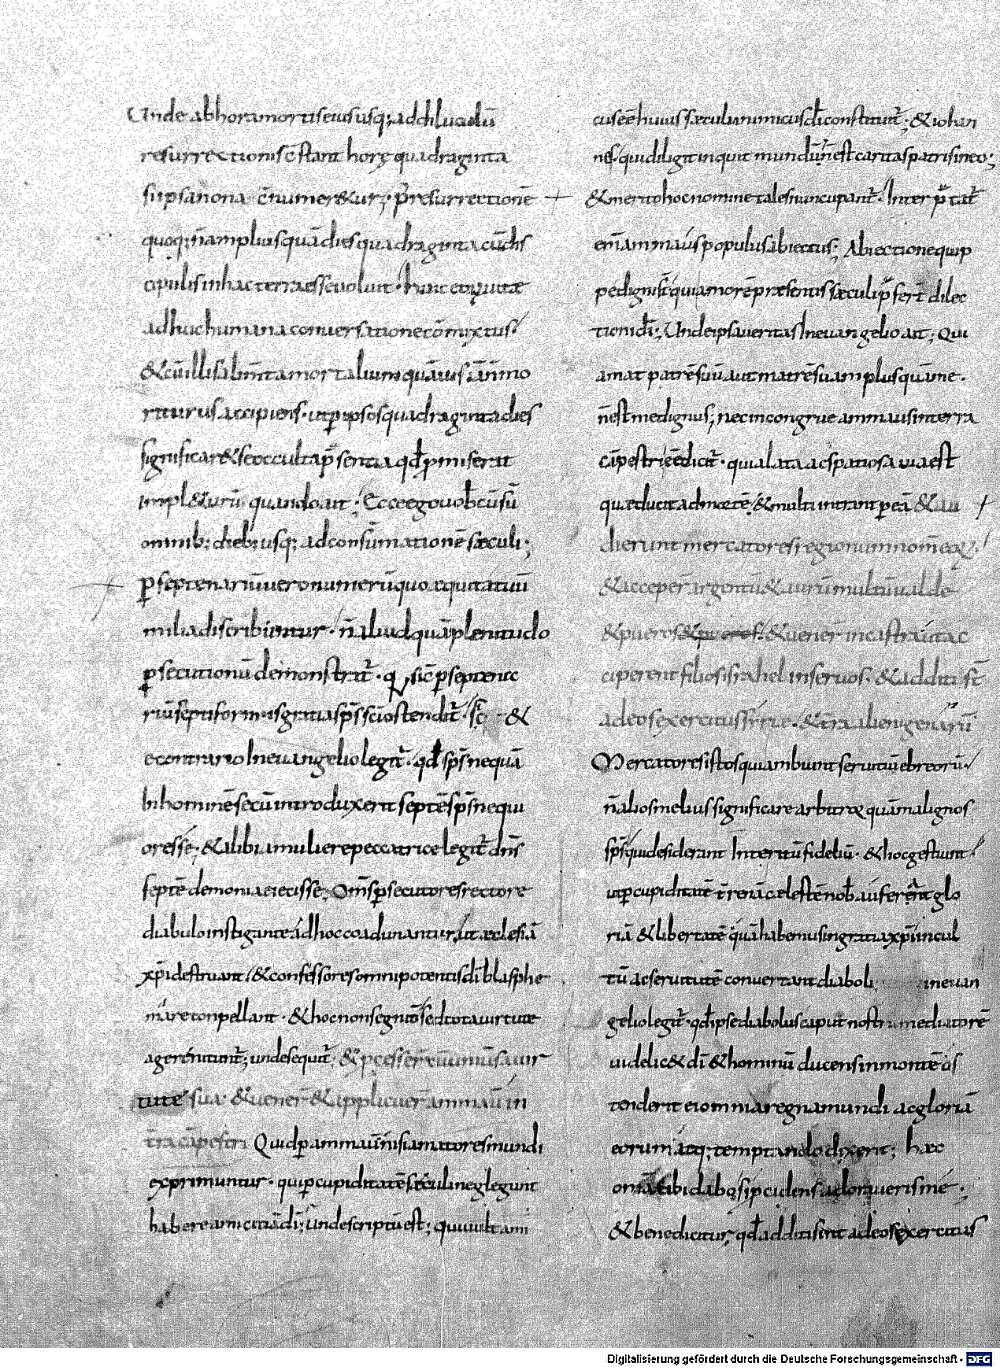 Unde ab hora mortis eius usq; ad diluculū
resurrectionis c̄stant horę quadraginta
si ipsa nona c̄numer&ur; p̄ resurrectionē
quoq; n̄ amplius quā dies quadraginta cū dis
cipulis in hac terra esse voluit · hanc
adhuc humana conuersatione cōmixtus ·
& cū illis alim̄ta mortalium quāuis iā īmmo
riturus accipiens · ut p̄ ipsos quadraginta dies
significar& se occulta p̄sentia qđ p̄miserat
impl&urū quando ait · Ecce ego uobcū sū
omnib; dieb; usq; ad consūmationē sæculi ;
ꝑ septenariū uero numerū quo equitatuū
milia discribuntur · n̄ aliud quā plenitudo
ꝑsecutionū demonstrat̄ · q sic̄ ꝑ septena
riū septiformis gratia sp̄s sc̄i ostendit̄ · sic &
e contrario In euangelio legit̄ · qđ sp̄s nequā
In hominē secū introduxerit septē sp̄s nequi
ores se · & alibi a muliere peccatrice legit̄ dn̄s
septē demonia eiecisse ; Om̄s ꝑsecutores rectore
diabulo instigante ad hoc coadunantur, ut ecclesiā
xp̄i destruant / & confessores omnipotentis dī blasphe
mare conpellant · & hoc non segnit̄ sed tota uirtute
agere nitunt̄ ; unde sequit̄ · & p̄cesser̄ uniuersa uir
tute sua · & uener̄ & applicuer̄ ammaū in
t̄ra cāpestri Quid ꝑ ammaū nisi amatores mundi
exprimuntur · qui ꝑ cupiditatē sæculi neglegunt
habere amicitiā dī ; unde scriptū est ; qui uult ami
cus eē huius sæculi inimicus dī constituit̄ ; & iohan
nes / qui diligit inquit mundū n̄ est caritas patris in eo ;
& merito hoc nomine tales nuncupant̄ · Inter p̄tat̄
eni̅ ammaus populus abiectus ; Abiectione quip
pe digni st̄ qui amorē præsentis sæculi p̄fert̄ dilec
tioni dī ; Unde ipsa ueritas In euangelio ait ; Qui
amat patrē suū aut matrē suam plus quā me ·
n̄ est me dignus, nec incongrue ammaus in terra
cāpestri eē dicit̄ · quia lata ac spatiosa uia est
quæ ducit ad mortē ; & multi intrant p̄ eā & au
dierunt mercatores regionum nom̄ eoꝝ ·
& acceper̄ argentū & aurū multū ualde
& pueros & pueros · & uener̄ in castra ut ac
ciperent filios israhel in seruos · & additi st̄
ad eos exercitus syrię · & t̄ra alienigenarū
Mercatores istos qui ambiunt seruitiū ebreorū ·
n̄ alios melius significare arbitror quā malignos
sp̄s / qui desiderant Interitū fidelium · & hoc gestiunt ·
ut p̄ cupiditatē t̄renā cælestē nob̄ auferant glo
riā & libertatē quā habemus in gratia xp̄i in cul
tū ac seruitutē conuertant diaboli in euan
gelio legit̄ · qđ ipse diabolus caput nostrū mediatorē
uidelic& dī & hominū ducens in montē os
tenderit ei omnia regna mundi ac gloriā
eorum atq; temptando dixerit ; hæc
omīa tibi dabo, si p̄cidens adoraueris me ;
& bene dicitur, qđ additi sint ad eos exercitus
Digitalisierung gefördert durch die Deutsche Forschungsgemeinschaft - DFG